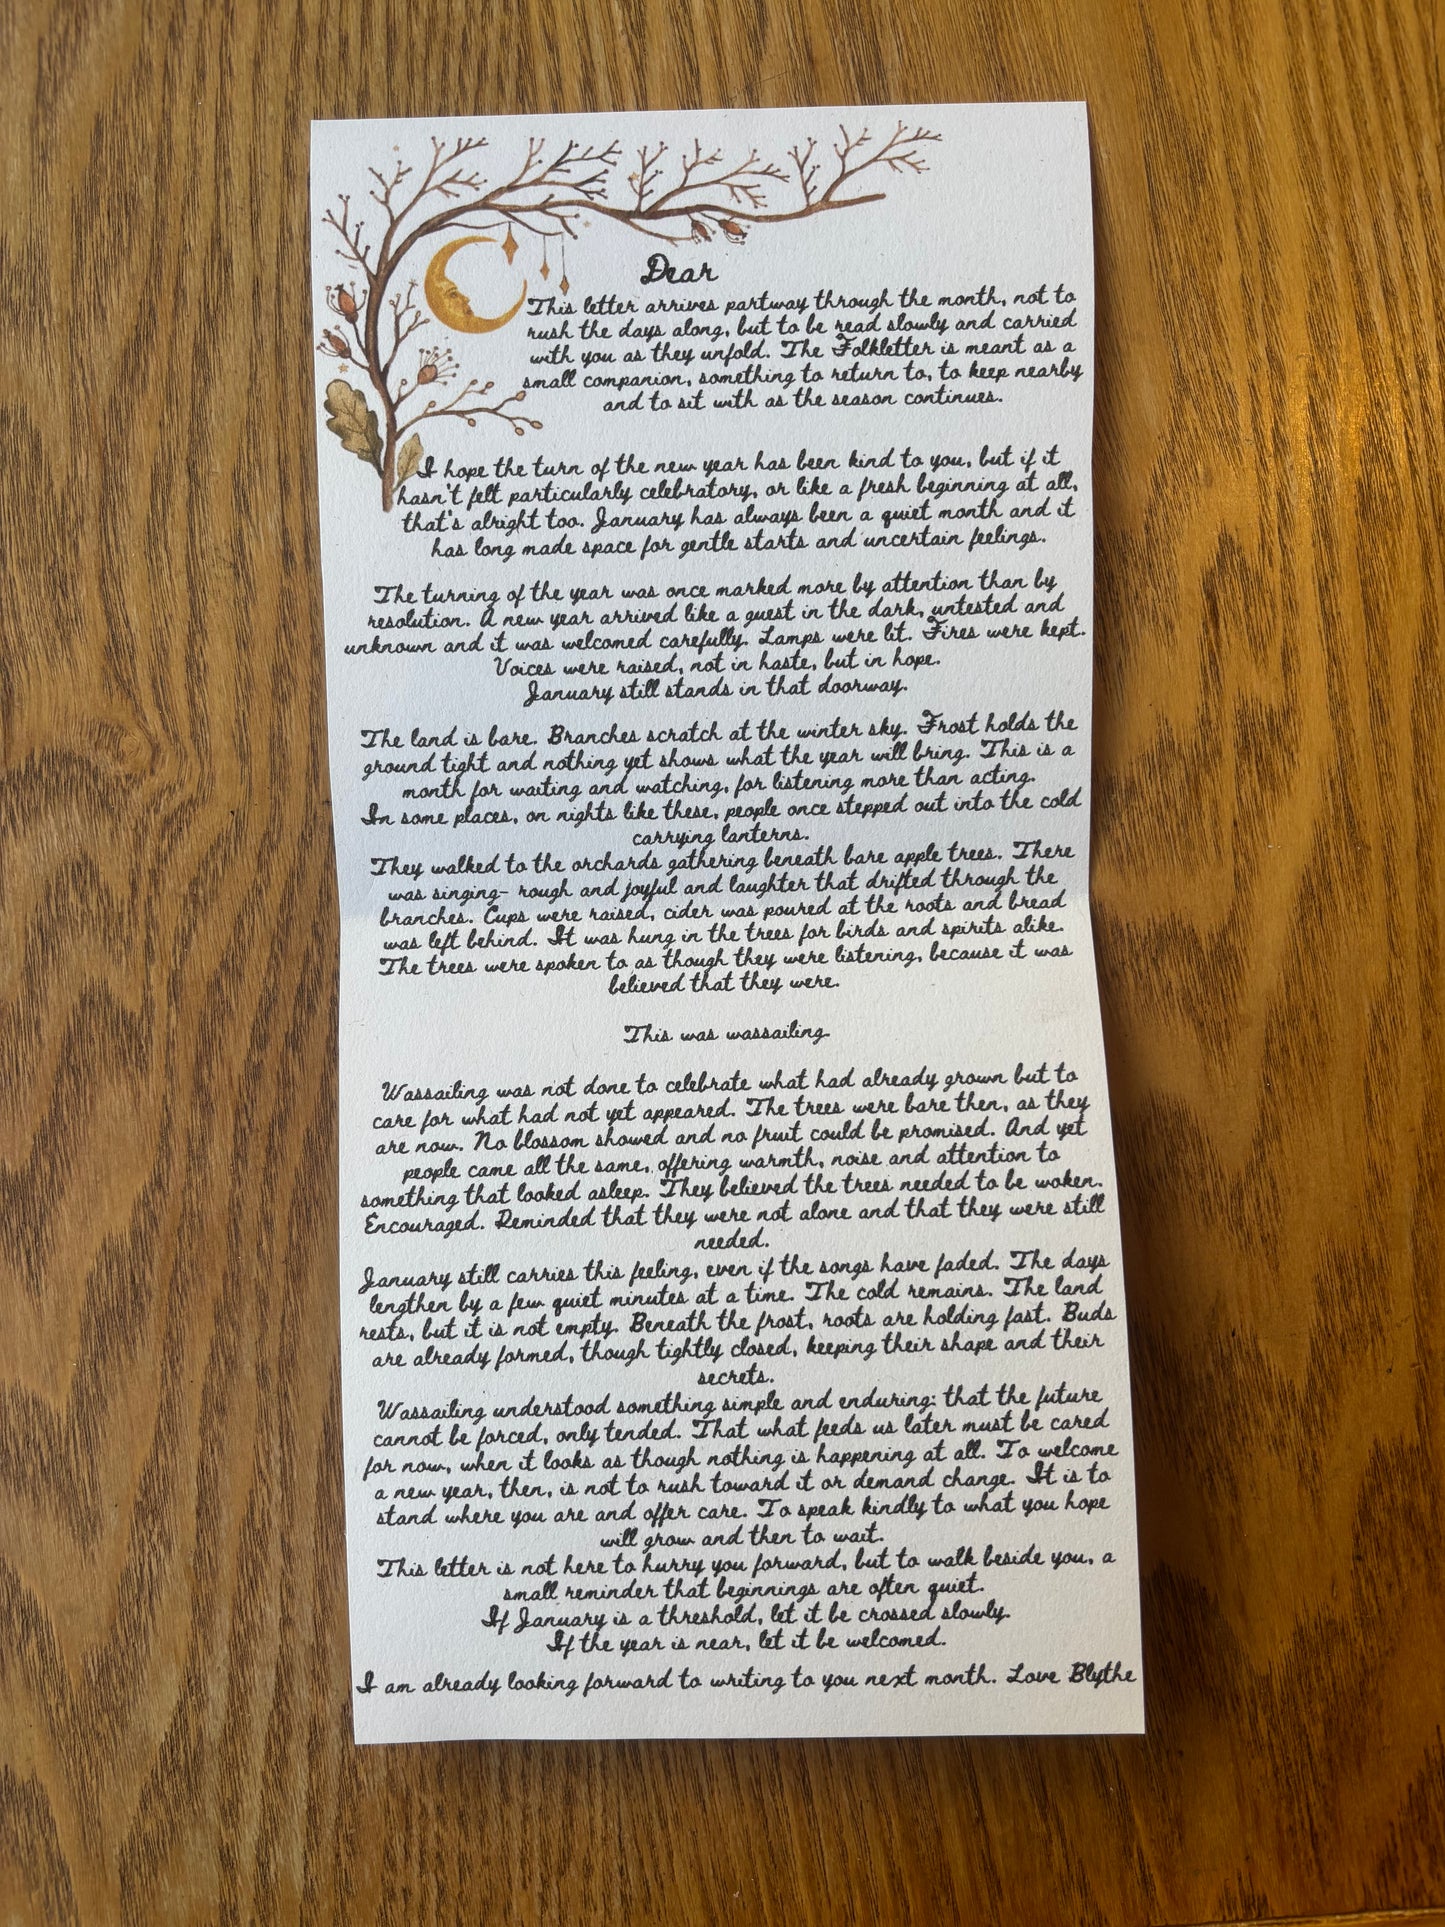 Dear
This letter arrives partway through the month, not to
rush the days along, but to be read slowly and carried
with you as they unfold. The Folkletter is meant as a
small companion, something to return to, to keep nearby
and to sit with as the season continues.
I hope the turn of the new year has been kind to you, but if it
hasn't felt particularly celebratory, or like a fresh beginning at all,
that's alright too. January has always been a quiet month and it
has long made space for gentle starts and uncertain feelings.
The turning of the year was once marked more by attention than by
resolution. A new year arrived like a guest in the dark, untested and
unknown and it was welcomed carefully. Lamps were lit. Fires were kept.
Voices were raised, not in haste, but in hope.
January still stands in that doorway.
The land is bare. Branches scratch at the winter sky. Frost holds the
ground tight and nothing yet shows what the year will bring. This is a
month for waiting and watching, for listening more than acting.
In some places, on nights like these, people once stepped out into the cold
carrying lanterns.
They walked to the orchards gathering beneath bare apple trees. There
was singing- rough and joyful and laughter that drifted through the
branches. Cups were raised, cider was poured at the roots and bread
was left behind. It was hung in the trees for birds and spirits alike.
The trees were spoken to as though they were listening, because it was
believed that they were.
This was wassailing
Wassailing was not done to celebrate what had already grown but to
care for what had not yet appeared. The trees were bare then, as they
are now. No blossom showed and no fruit could be promised. And yet
people came all the same, offering warmth, noise and attention to
something that looked asleep. They believed the trees needed to be woken.
Encouraged. Reminded that they were not alone and that they were still
needed.
January still carries this feeling, even if the songs have faded. The days
lengthen by a few quiet minutes at a time. The cold remains. The land
rests, but it is not empty. Beneath the frost, roots are holding fast. Buds
are already formed, though tightly closed, keeping their shape and their
secrets.
Wassailing understood something simple and enduring: that the future
cannot be forced, only tended. That what feeds us later must be cared
for now, when it looks as though nothing is happening at all. To welcome
a new year, then, is not to rush toward it or demand change. It is to
stand where you are and offer care. To speak kindly to what you hope
will grow and then to wait.
This letter is not here to hurry you forward, but to walk beside you, a
small reminder that beginnings are often quiet.
If January is a threshold, let it be crossed slowly.
If the year is near, let it be welcomed.
I am already looking forward to writing to you next month. Love Blythe